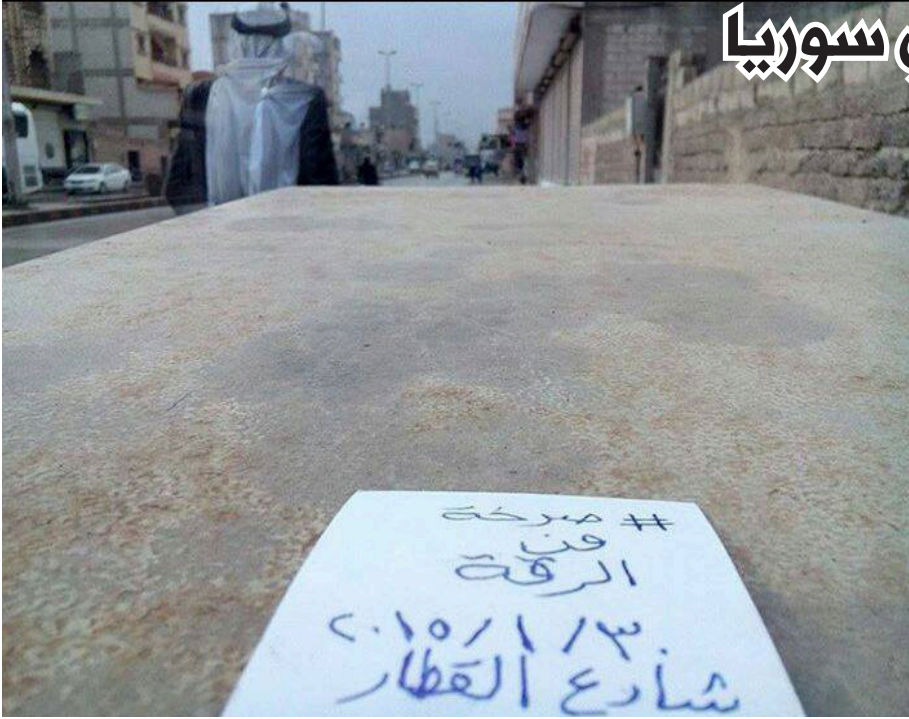 سوريا
# صرخة
من
الرقة
٣٠/١/٢٠١٥
شارع القطار